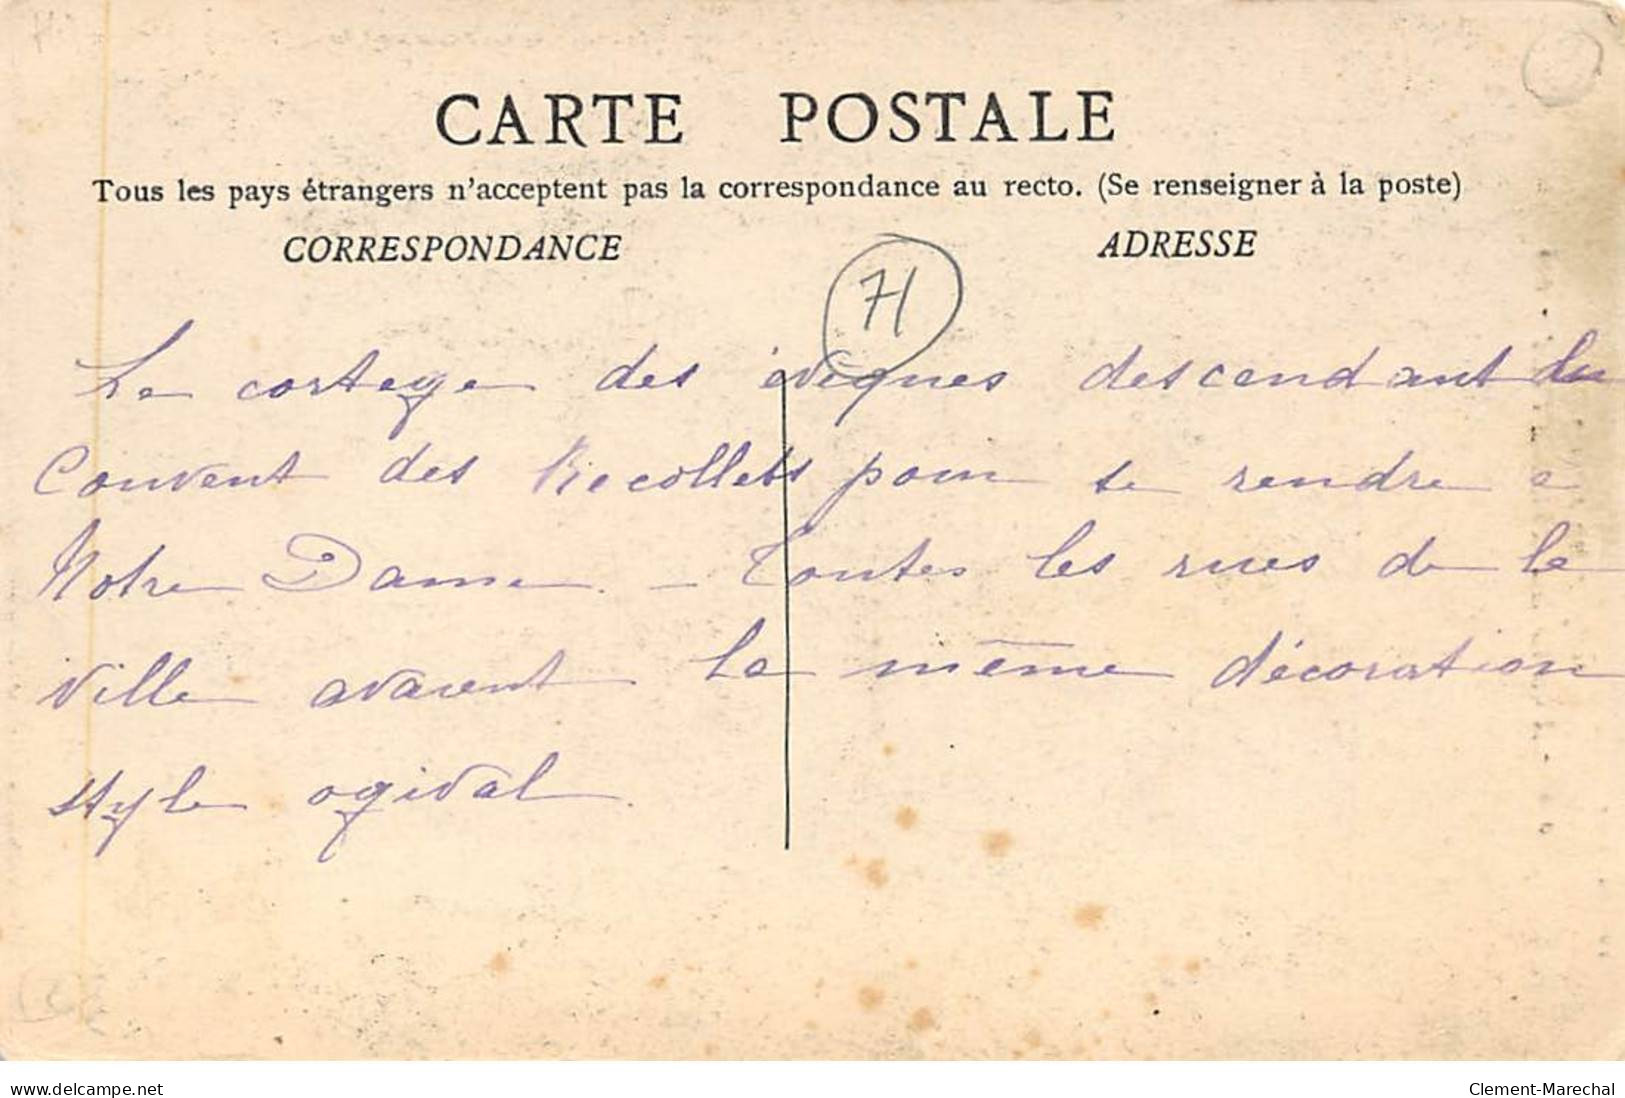 CARTE POSTALE
Tous les pays étrangers n'acceptent pas la correspondance au recto. (Se renseigner à la poste)
CORRESPONDANCE
ADRESSE
71
Le cortege des évêques descendant du
Couvent des Recollets pour se rendre a
Notre Dame. - Toutes les rues de la
ville avaient la même décoration
style ogival.
www.delcampe.net
Clement-Marechal